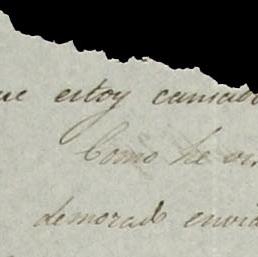 ue estoy cansado
Como he vi
demorad envia